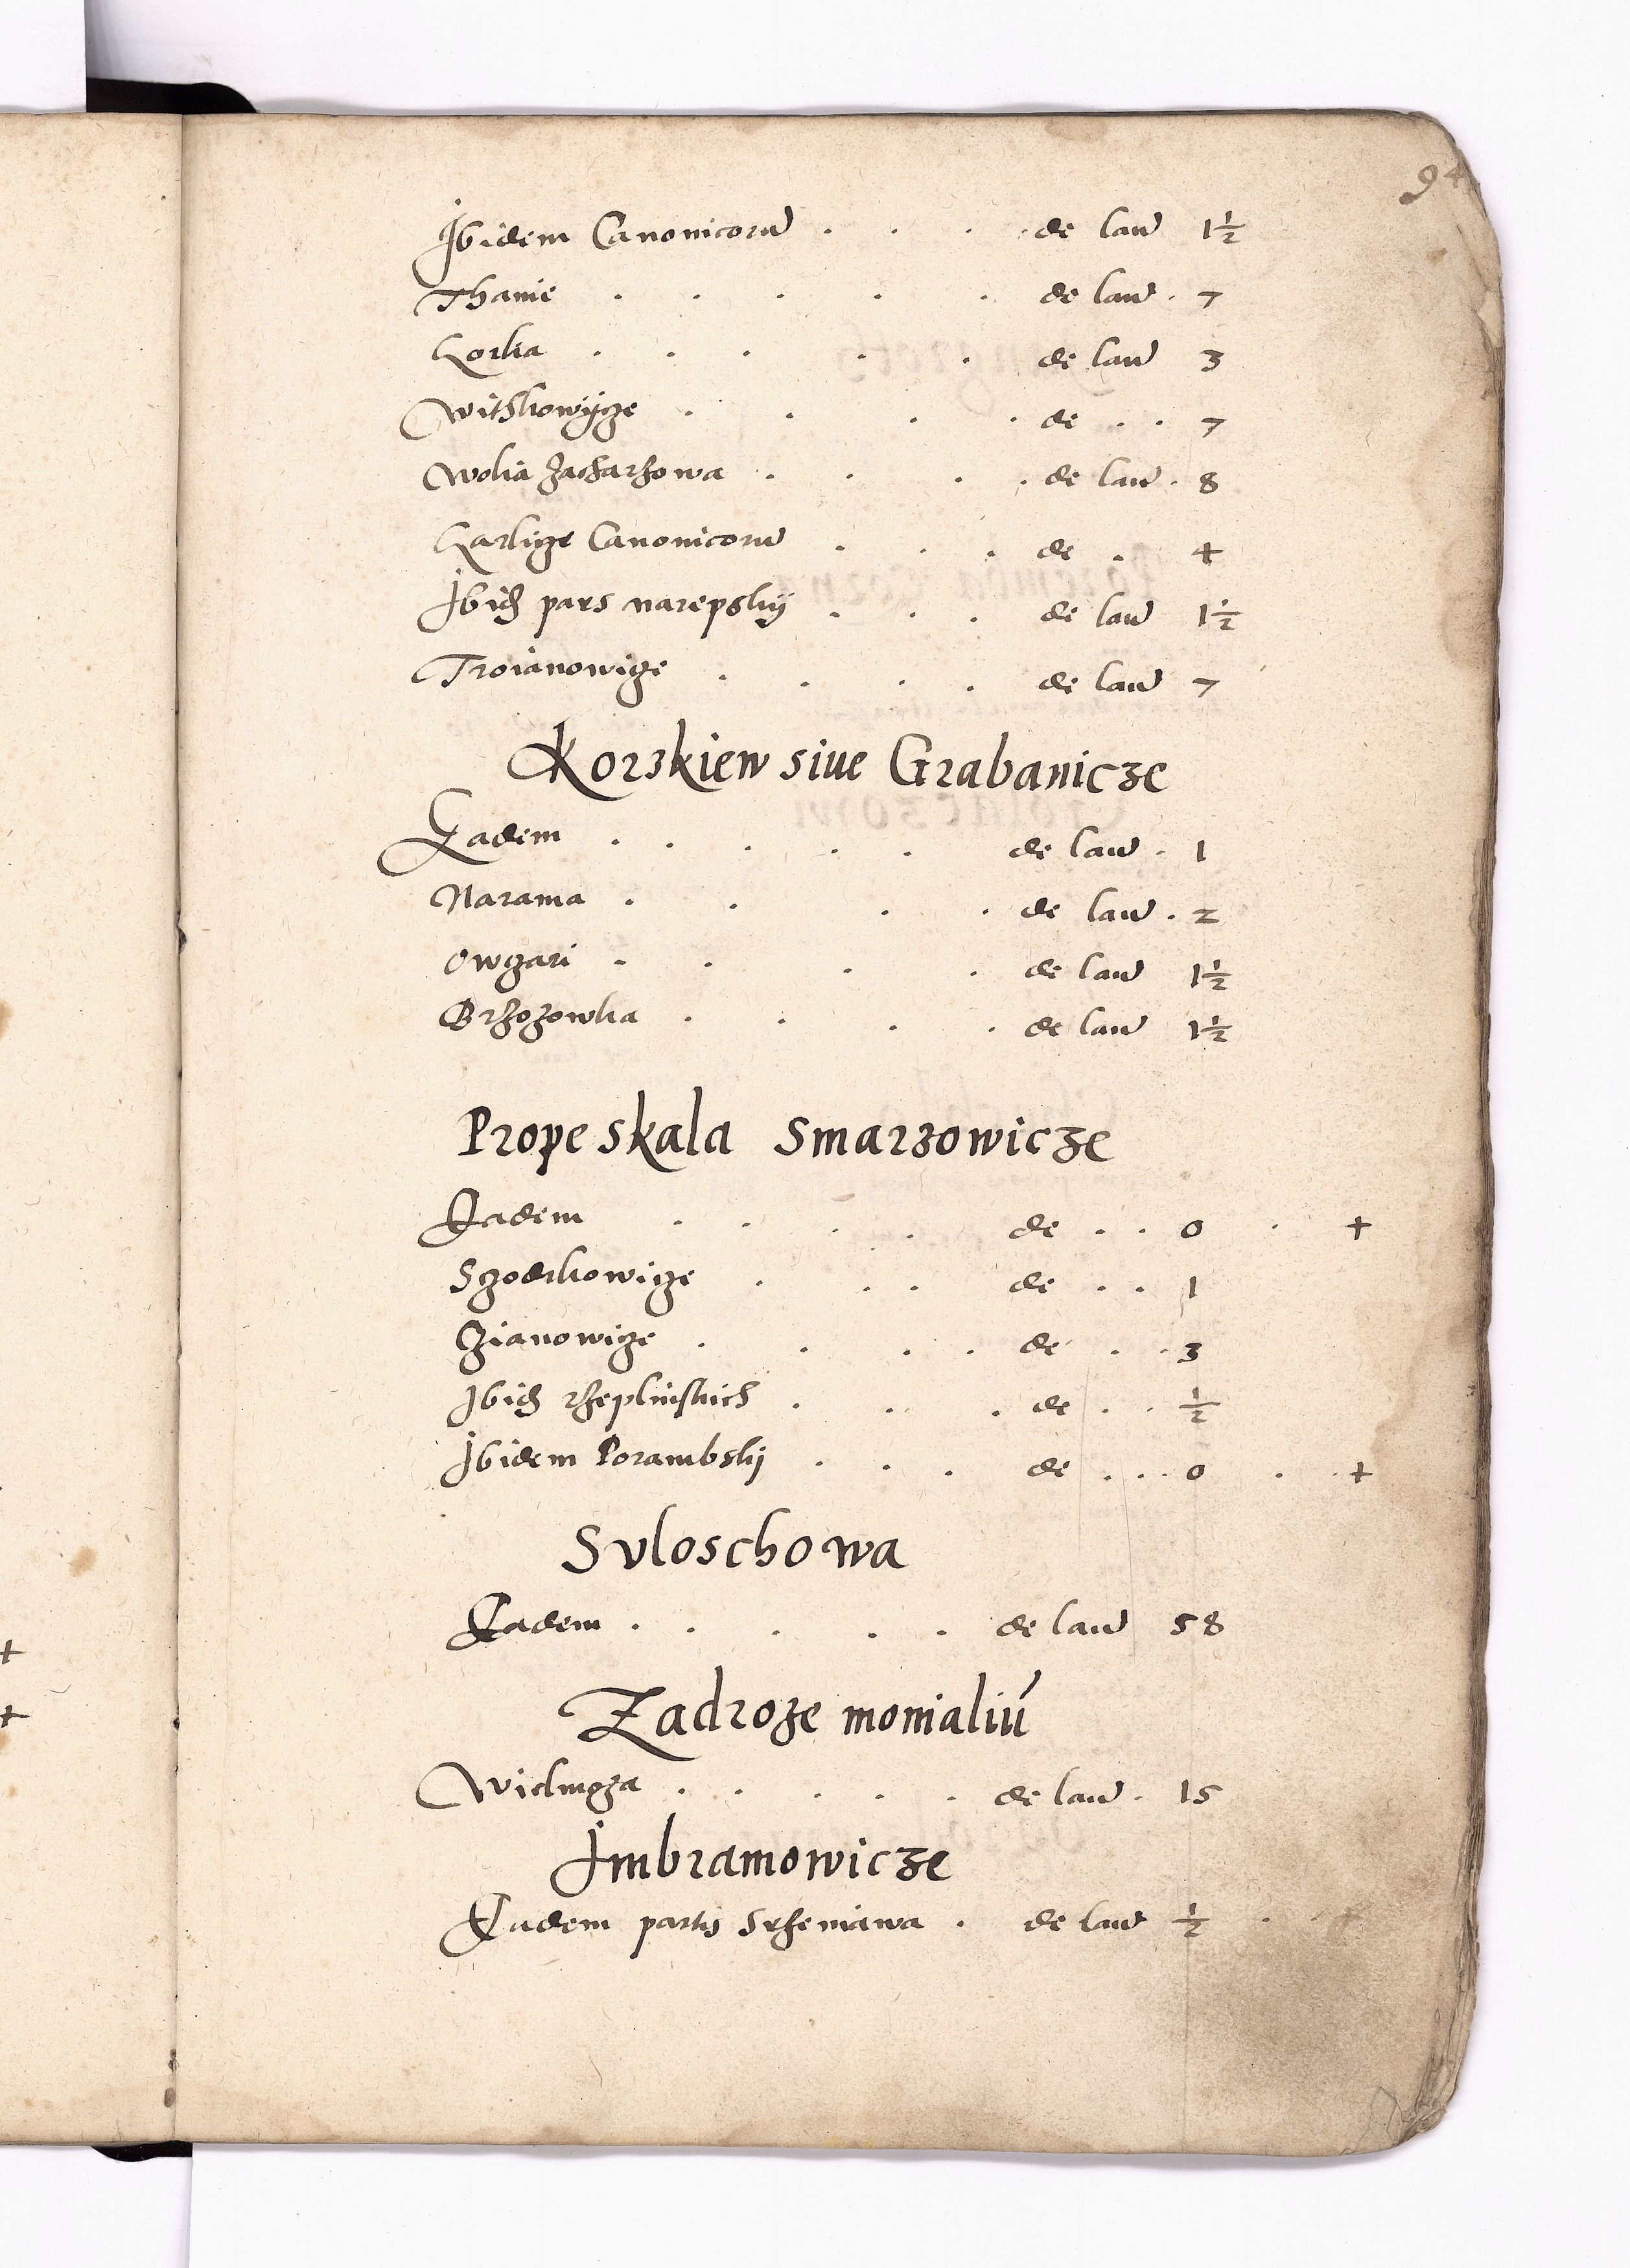 94
Ibidem Canonicorū . . . de laū 1½
Thanie . . . . . de laū . 7
Gorka . . . . . de laū 3
Witkowycze . . . . de . . 7
Wolia Zacharzowa . . . . de laū . 8
Garlicze Canonicorū . . . de . 4
Ibid pars narepskij . . . de laū 1½
Troianowicze . . . . de laū 7
Korzkiew siue Grabanicze
Eadem . . . . . de laū . 1
Narama . . . . de laū . 2
Owczari . . . . de laū 1½
Brzozowka . . . . de laū 1½
Prope skala Smarzowicze
Eadem . . . . de . . 0 . +
Sczodrkowicze . . . de . . 1
Czianowicze . . . . de . . 3
Ibid rzeplinskich . . . de . . ½
Ibidem Porambskij . . . de . . . 0 . . +
Suloschowa
Eadem . . . . . de laū 58
Zadroze monialiū
Wielmoza . . . . . de laū . 15
Imbramowicze
Eadem partis Srzeniawa . de laū ½ . .